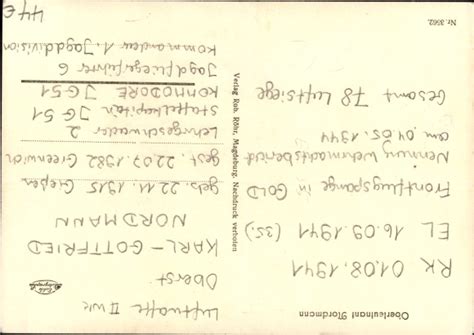 Oberleutnant Nordmann
RK 01.08.1941
EL 16.09.1941 (35.)
Frontflugspange in GOLD
Nennung Wehrmachtsbericht
am 04.05.1941
Gesamt 78 Luftsiege
Nr. 3562.
Verlag Rob. Röhr, Magdeburg. Nachdruck verboten
Luftwaffe II WK
Oberst
KARL-GOTTFRIED
NORDMANN
geb. 22.11.1915 Gießen
gest. 22.07.1982 Greenwich
Lehrgeschwader 2
Staffelkapitän JG 51
KOMMODORE JG 51
Jagdfliegerführer 6
Kommandeur 1. Jagddivision
44€